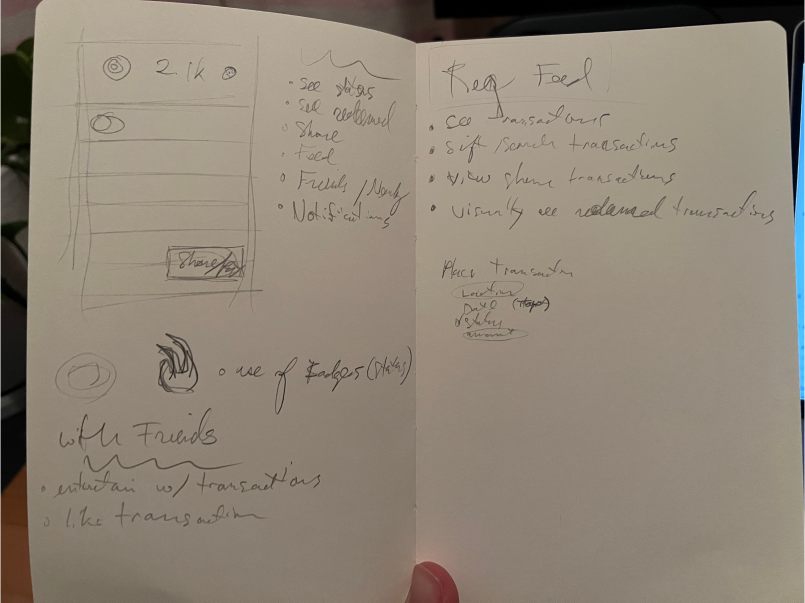 2.1k
• see status
• see redeemed
• Share
• Feed
• Friends / Nearby
• Notifications
Share/
• use of Badges (status)
with Friends
• entertain w/ transactions
• like transaction
Req Feed
• see transactions
• sift/search transactions
• view share transactions
• visually see redeemed transactions
Place transaction
Location
Date
amount